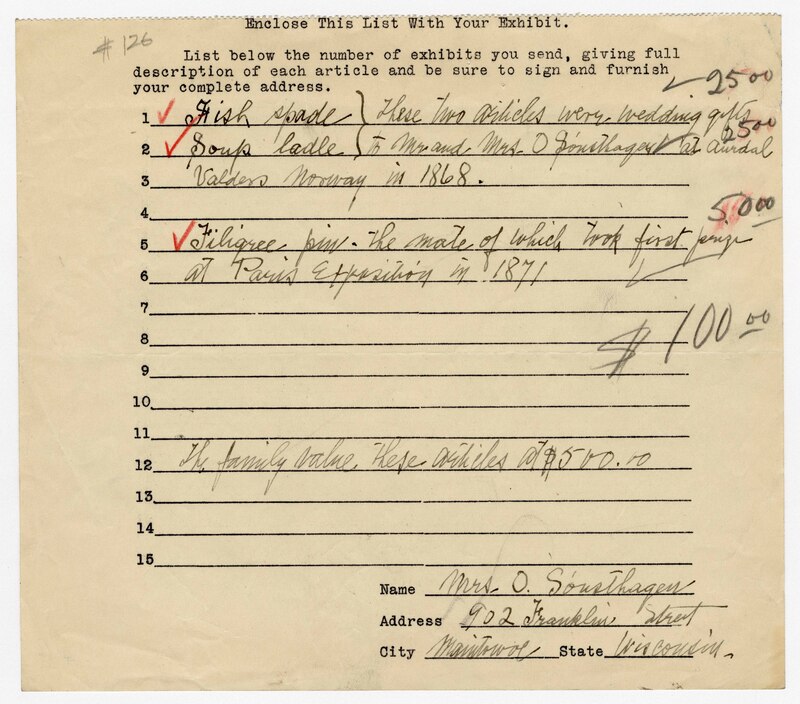 Enclose This List With Your Exhibit.
# 126
List below the number of exhibits you send, giving full
description of each article and be sure to sign and furnish
your complete address.
25 00
1 Fish spade } These two articles were wedding gifts
25 00
2 Soup ladle } to Mr and Mrs. O Sönsthagen at Aurdal
3 Valders Norway in 1868.
4
50 00
5 Filigree pin - the mate of which took first prize
6 at Paris Exposition in 1871
7
$100 00
8
9
10
11
12 The family value these articles at $500.00
13
14
15
Name Mrs. O. Sönsthagen
Address 902 Franklin Street
City Manitowoc State Wisconsin.